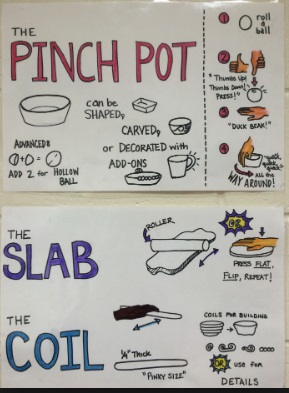 THE
PINCH POT
can be
SHAPED,
CARVED,
or DECORATED with
ADD-ONS
ADVANCED:
ADD 2 for HOLLOW
BALL
1 roll
a
ball
2
"Thumbs Up!
Thumbs Down!
PRESS!"
3
"DUCK BEAK!"
4
"quack,
quack,
quack"
All the
WAY AROUND!
THE
SLAB
ROLLER
OR
PRESS FLAT,
FLIP, REPEAT!
THE
COIL
1/4" Thick
"PINKY SIZE"
COILS FOR BUILDING
OR use for
DETAILS